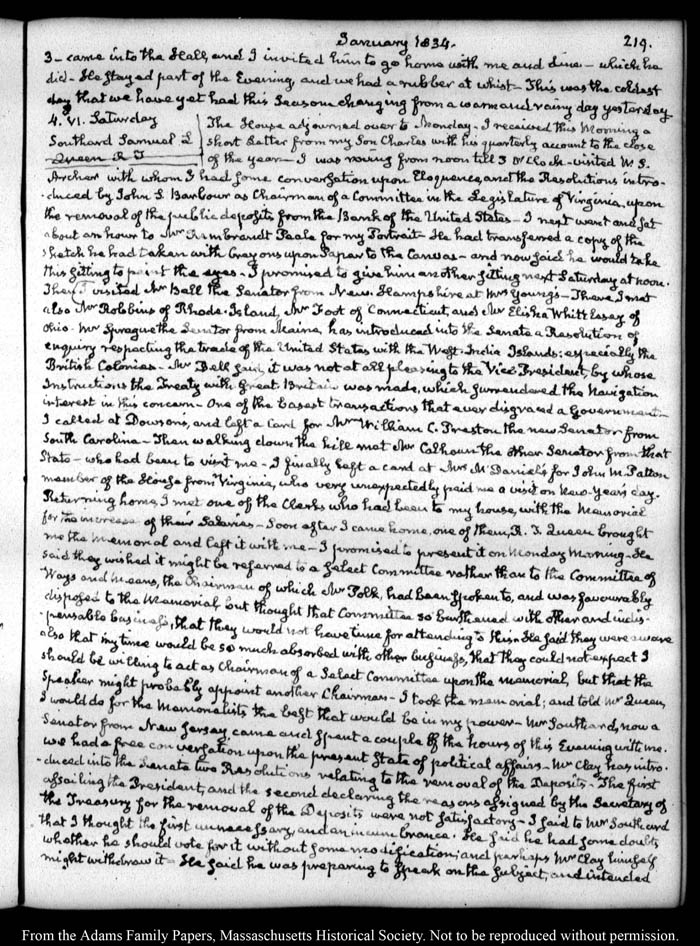 January 1834. 219.
3 – came into the Hall, and I invited him to go home with me and dine – which he
did – He stayed part of the Evening, and we had a rubber at whist – This was the coldest
day that we have yet had this Season changing from a warm and rainy day yesterday
4. VI. Saturday
Southard Samuel L
Queen R J
The House adjourned over to Monday – I received this Morning a
short Letter from my Son Charles with his quarterly account to the close
of the year – I was roving from noon till 3 O'Clock – visited W. S.
Archer with whom I had some conversation upon Eloquence, and the Resolutions intro-
-duced by John S. Barbour as Chairman of a Committee in the Legislature of Virginia, upon
the removal of the public deposits from the Bank of the United States – I next went and sat
about an hour to Mr Rembrandt Peale for my Portrait – He had transferred a copy of the
sketch he had taken with Crayons upon Paper to the Canvas – and now said he would take
this sitting to paint the eyes – I promised to give him another sitting next Saturday at noon.
Then I visited Mr Bell the Senator from New-Hampshire at Mrs Young's – There I met
also Mr Robbins of Rhode-Island, Mr Foot of Connecticut, and Mr Elisha Whittlesey of
Ohio – Mr Sprague the Senator from Maine, has introduced into the Senate a Resolution of
enquiry respecting the trade of the United States with the West-India Islands: especially the
British Colonies – Mr Bell said, it was not at all pleasing to the Vice President, by whose
Instructions the Treaty with Great Britain was made, which surrendered the Navigation
interest in this concern – One of the basest transactions that ever disgraced a Government –
I called at Dowsons, and left a Card for Mr William C. Preston the new Senator from
South Carolina – Then walking down the hill met Mr Calhoun the other Senator from that
State – who had been to visit me – I finally left a card at Mrs McDaniel's for John M. Patton
member of the House from Virginia, who very unexpectedly paid me a visit on New-Year's day.
Returning home, I met one of the Clerks who had been to my house, with the Memorial
for the increase of their Salaries – Soon after I came home, one of them, R. J. Queen brought
me the Memorial and left it with me – I promised to present it on Monday Morning – He
said they wished it might be referred to a Select Committee rather than to the Committee of
Ways and Means, the Chairman of which Mr Polk, had been spoken to, and was favourably
disposed to the Memorial, but thought that Committee so burthened with other and indis-
-pensable business, that they would not have time for attending to this – He said they were aware
also that my time would be so much absorbed with other business, that they could not expect I
should be willing to act as Chairman of a Select Committee upon the memorial, but that the
Speaker might probably appoint another Chairman – I took the memorial; and told Mr Queen,
I would do for the Memorialists the best that would be in my power – Mr Southard, now a
Senator from New Jersey, came and spent a couple of the hours of this Evening with me.
we had a free conversation upon the present State of political affairs – Mr Clay has intro-
-duced into the Senate two Resolutions relating to the removal of the Deposits – The first
assailing the President, and the second declaring the reasons assigned by the Secretary of
the Treasury for the removal of the Deposits were not satisfactory – I said to Mr Southard
that I thought the first unnecessary, and an incumbrance. He said he had some doubts
whether he should vote for it without some modification; and perhaps Mr Clay himself
might withdraw it – He said he was preparing to speak on the subject, and intended
From the Adams Family Papers, Massachusetts Historical Society. Not to be reproduced without permission.